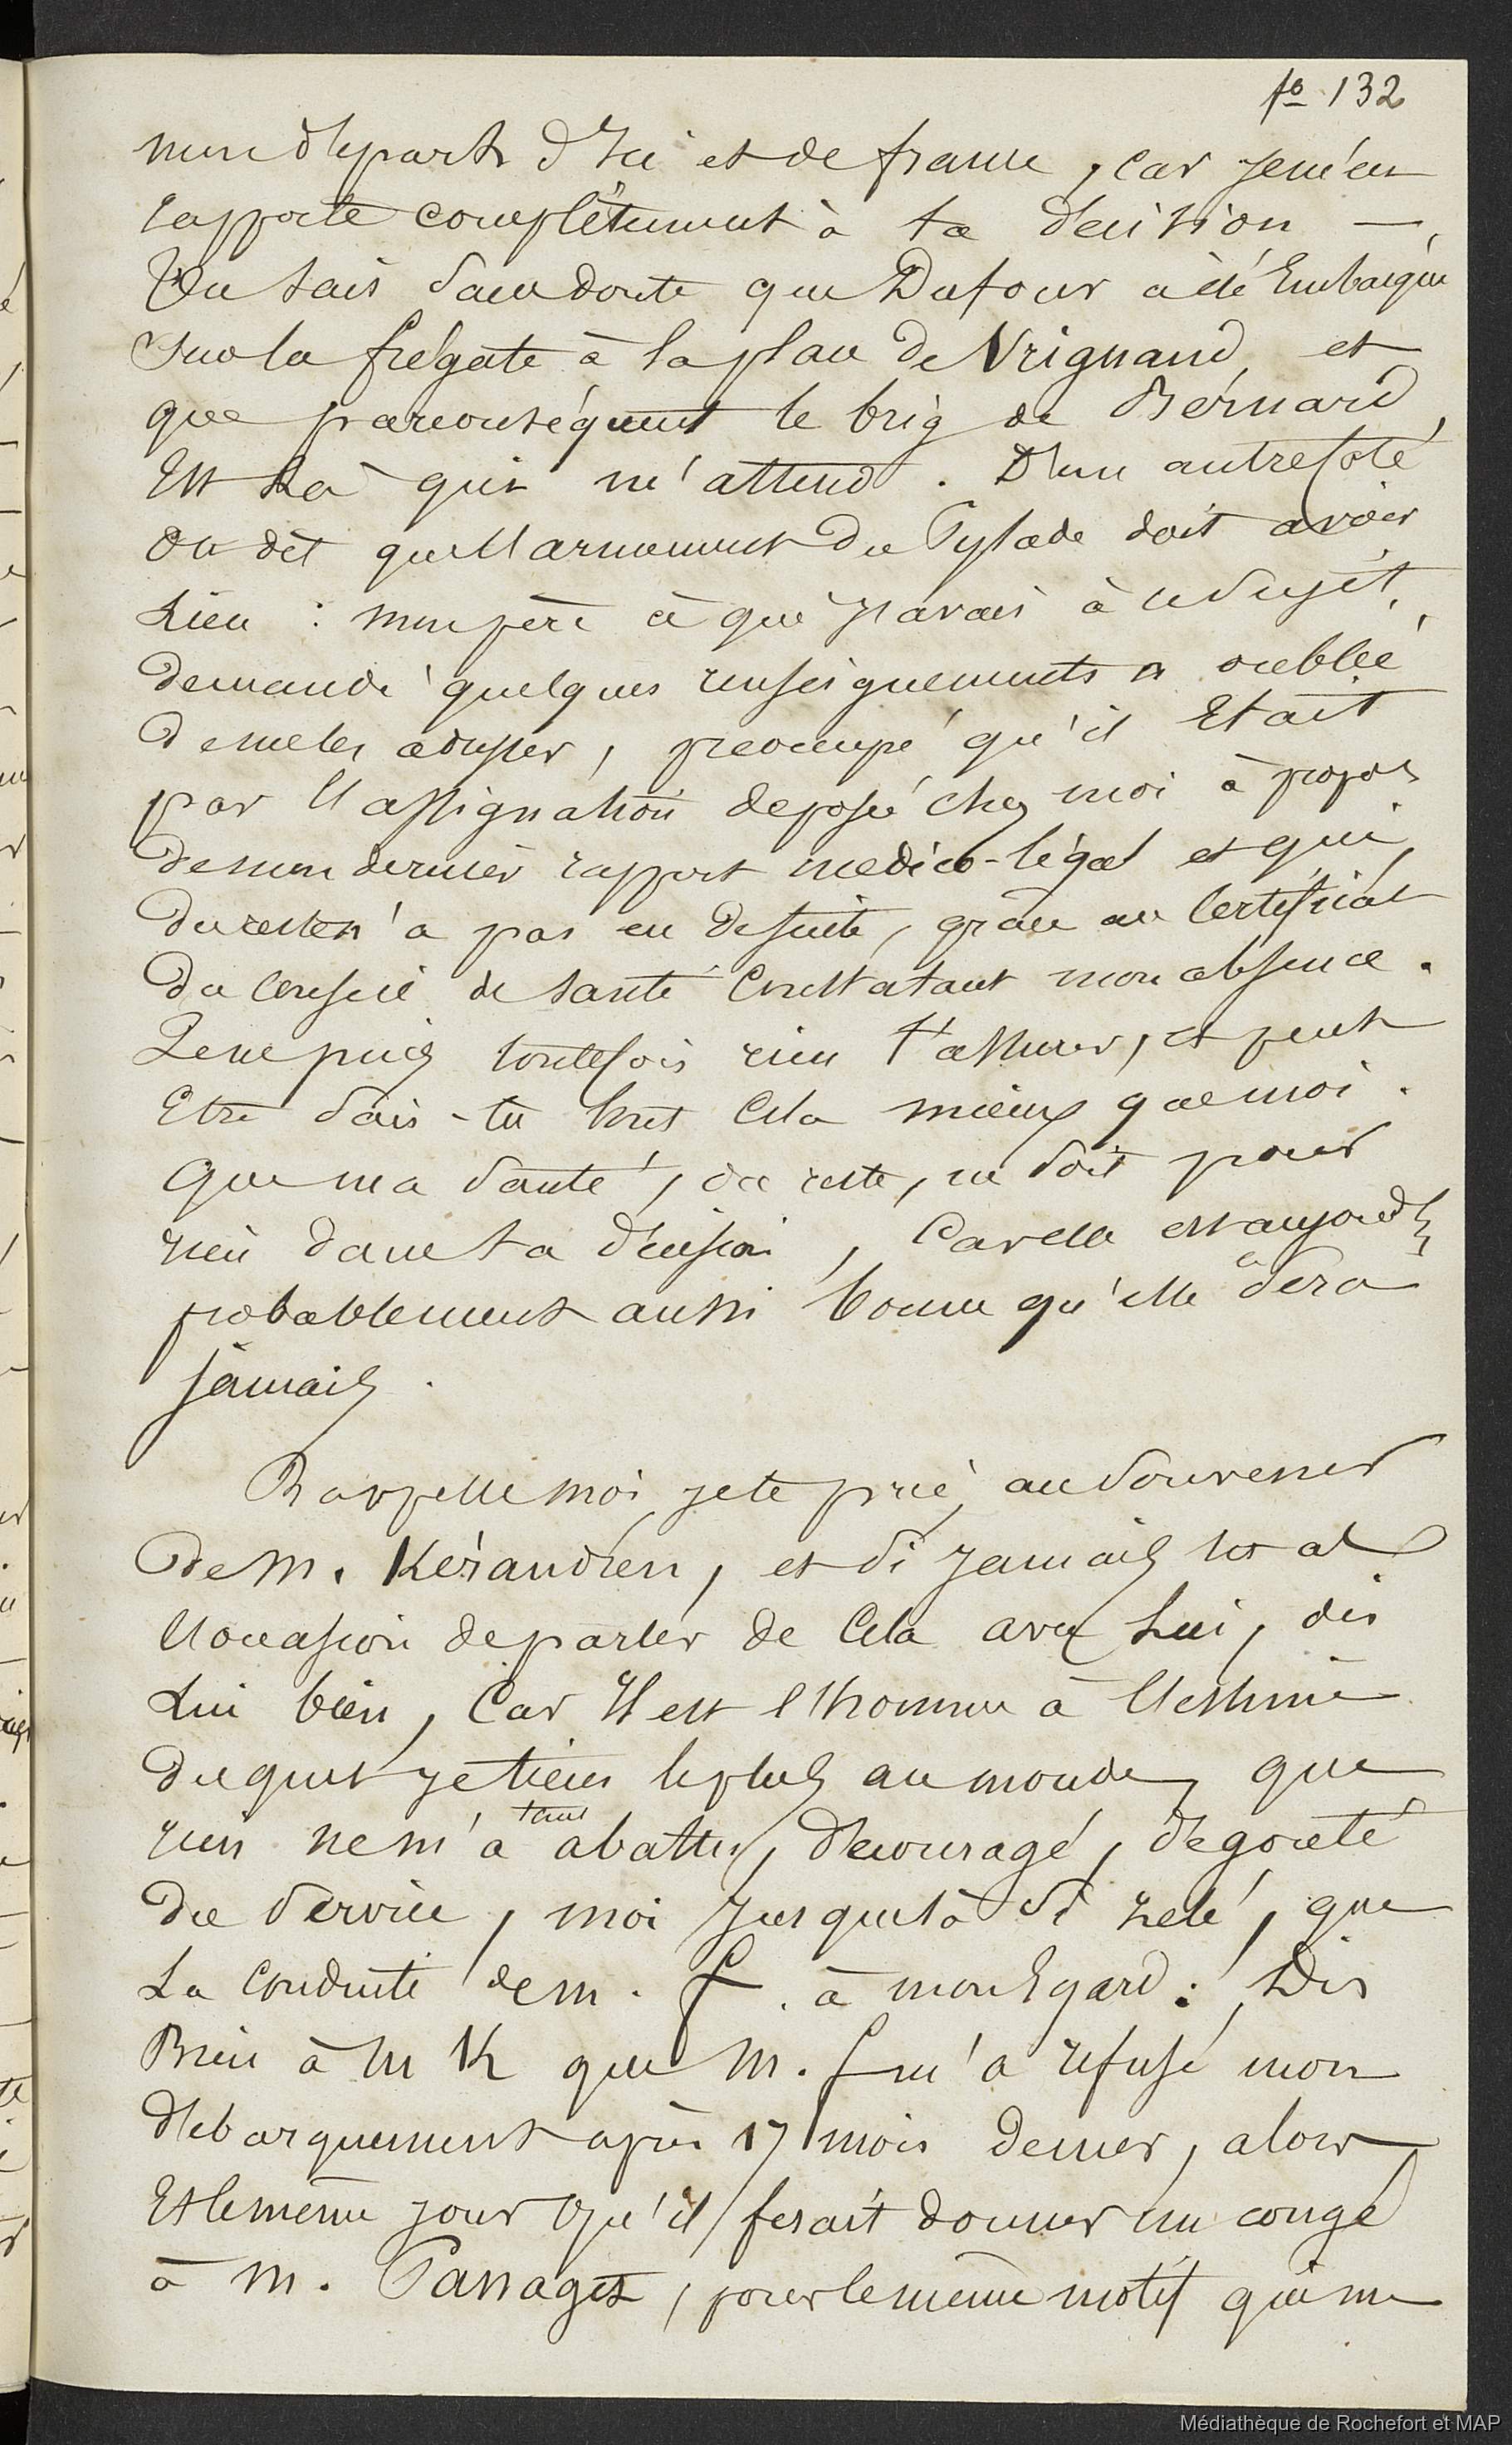 fo 132
mon départ d'Ici et de france, car je m'en
rapporte complètement à ta décision —
Tu sais sans doute que Dufour a été Embarqué
sur la frégate à la place de Vrignaud, et
que par conséquent le brig de Bernard,
Est Là qui m'attend. D'un autre Coté
On dit que l'armement du Pylade doit avoir
Lieu : mon père à qui j'avais à ce sujet,
demandé quelques renseignements a oublié
de me les adresser, préoccupé qu'il Etait
par l'assignation déposée chez moi à propos
de mon dernier rapport médico-légal et qui,
du reste n'a pas eu de suite, grâce au Certificat
du Conseil de santé Constatant mon absence.
Je ne puis toutefois rien t'assurer, et peut
Etre sais-tu tout Cela mieux que moi.
Que ma santé, du reste, ne soit pour
rien dans ta décision, Car elle est aujourd'h
probablement aussi bonne qu'elle le sera
jamais.
Rappelle moi, je te prie, au souvenir
de M. Kérandren, et si jamais tu as
l'occasion de parler de Cela avec Lui, dis
Lui bien, Car Il est l'homme à l'estime
duquel je tiens le plus au monde, que
rien ne m'a tant abattu, découragé, dégoûté
du service, moi jusques là si zélé, que
La Conduite de M. f. à mon Egard : Dis
Bien à M K que M. f m'a refusé mon
débarquement après 17 mois de mer, alors
Et le même jour qu'il fesait donner un congé
à M. Panaget, pour le même motif qui me
Médiathèque de Rochefort et MAP